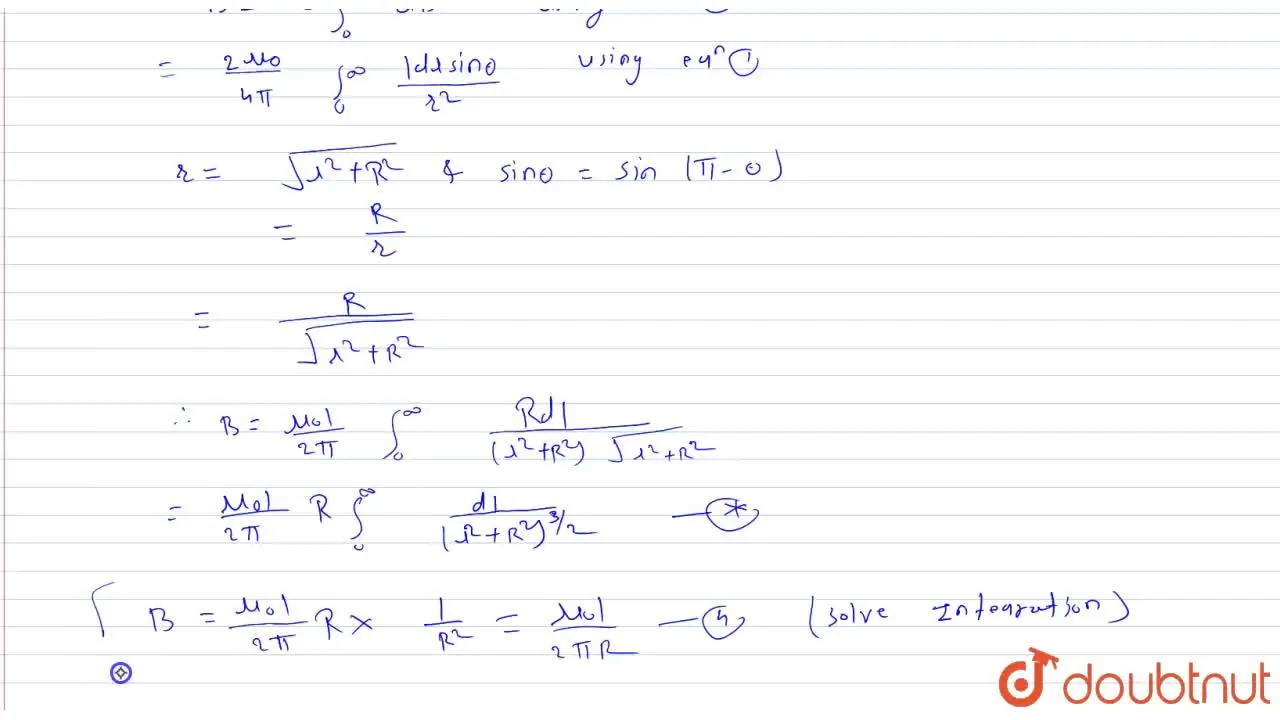 = 2μ0/4π ∫0^∞ Idl sinθ/r² using eqⁿ ①
r = √l²+R² & sinθ = sin (π-θ)
= R/r
= R/√l²+R²
∴ B = μ0I/2π ∫0^∞ Rdl/(l²+R²) √l²+R²
= μ0I/2π R ∫0^∞ dl/(l²+R²)^3/2 — *
B = μ0I/2π R × 1/R² = μ0I/2πR — ④ (solve Integration)
doubtnut